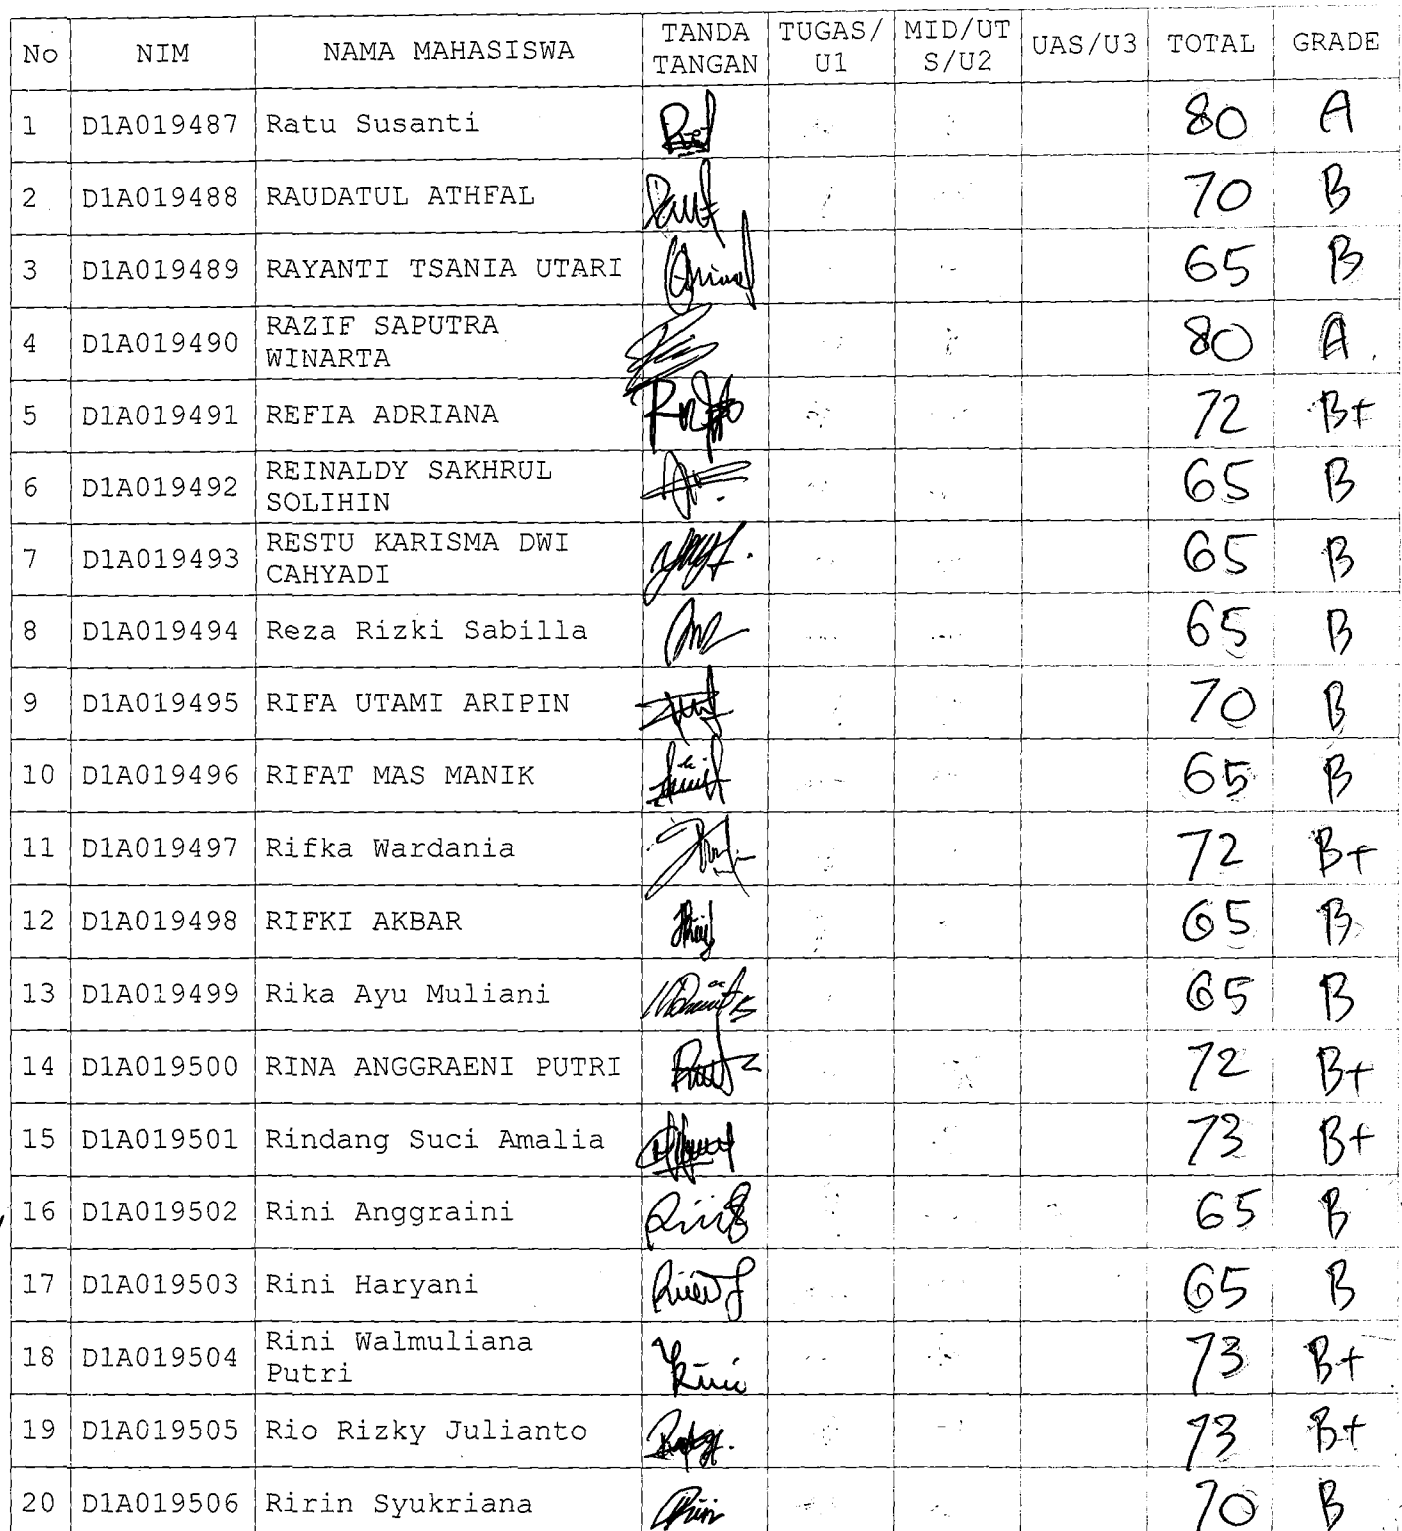 No NIM NAMA MAHASISWA TANDA TANGAN TUGAS/U1 MID/UTS/U2 UAS/U3 TOTAL GRADE
1 D1A019487 Ratu Susanti 80 A
2 D1A019488 RAUDATUL ATHFAL 70 B
3 D1A019489 RAYANTI TSANIA UTARI 65 B
4 D1A019490 RAZIF SAPUTRA
WINARTA 80 A
5 D1A019491 REFIA ADRIANA 72 B+
6 D1A019492 REINALDY SAKHRUL
SOLIHIN 65 B
7 D1A019493 RESTU KARISMA DWI
CAHYADI 65 B
8 D1A019494 Reza Rizki Sabilla 65 B
9 D1A019495 RIFA UTAMI ARIPIN 70 B
10 D1A019496 RIFAT MAS MANIK 65 B
11 D1A019497 Rifka Wardania 72 B+
12 D1A019498 RIFKI AKBAR 65 B
13 D1A019499 Rika Ayu Muliani 65 B
14 D1A019500 RINA ANGGRAENI PUTRI 72 B+
15 D1A019501 Rindang Suci Amalia 73 B+
16 D1A019502 Rini Anggraini 65 B
17 D1A019503 Rini Haryani 65 B
18 D1A019504 Rini Walmuliana
Putri 73 B+
19 D1A019505 Rio Rizky Julianto 73 B+
20 D1A019506 Ririn Syukriana 70 B